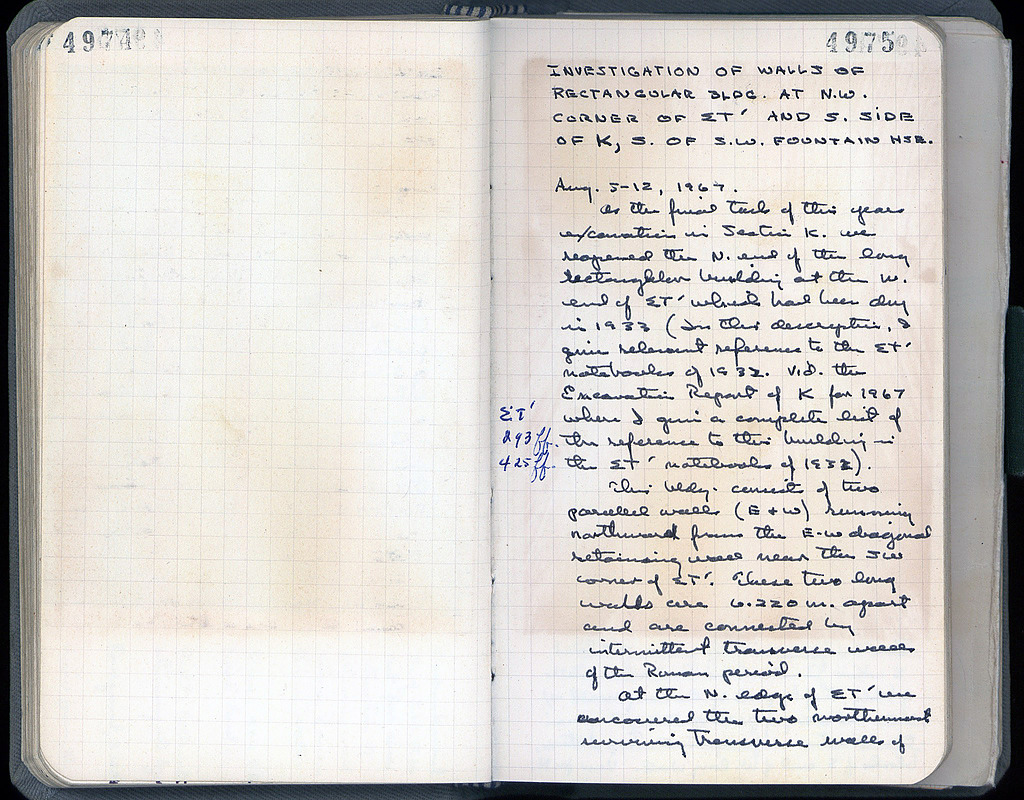 4974
4975
INVESTIGATION OF WALLS OF
RECTANGULAR BLDG. AT N.W.
CORNER OF ΣΤ' AND S. SIDE
OF K, S. OF S.W. FOUNTAIN HSE.
Aug. 5-12, 1967.
As the final task of this years
excavation in Section K. we
reopened the N. end of the long
rectangular building at the W.
end of ΣΤ' which had been dug
in 1933 (In this description, I
give relevant reference to the ΣΤ'
notebooks of 1932. Vid. the
Excavation Report of K for 1967
where I give a complete list of
the reference to this building in
the ΣΤ' notebooks of 1932).
ΣΤ'
293ff.
425ff.
This bldg. consists of two
parallel walls (E + W) running
northward from the E-W diagonal
retaining wall near the SW
corner of ΣΤ'. These two long
walls are 6.220 m. apart
and are connected by
intermittent transverse walls
of the Roman period.
At the N. edge of ΣΤ' we
uncovered the two northernmost
surviving transverse walls of